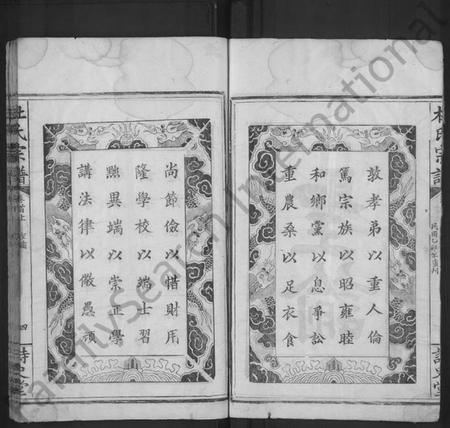 杜氏宗譜
敦孝弟以重人倫
篤宗族以昭雍睦
和鄉黨以息爭訟
重農桑以足衣食
詩史堂
尚節儉以惜財用
隆學校以端士習
黜異端以崇正學
講法律以儆愚頑
杜氏宗譜
四
詩史堂
FamilySearch International